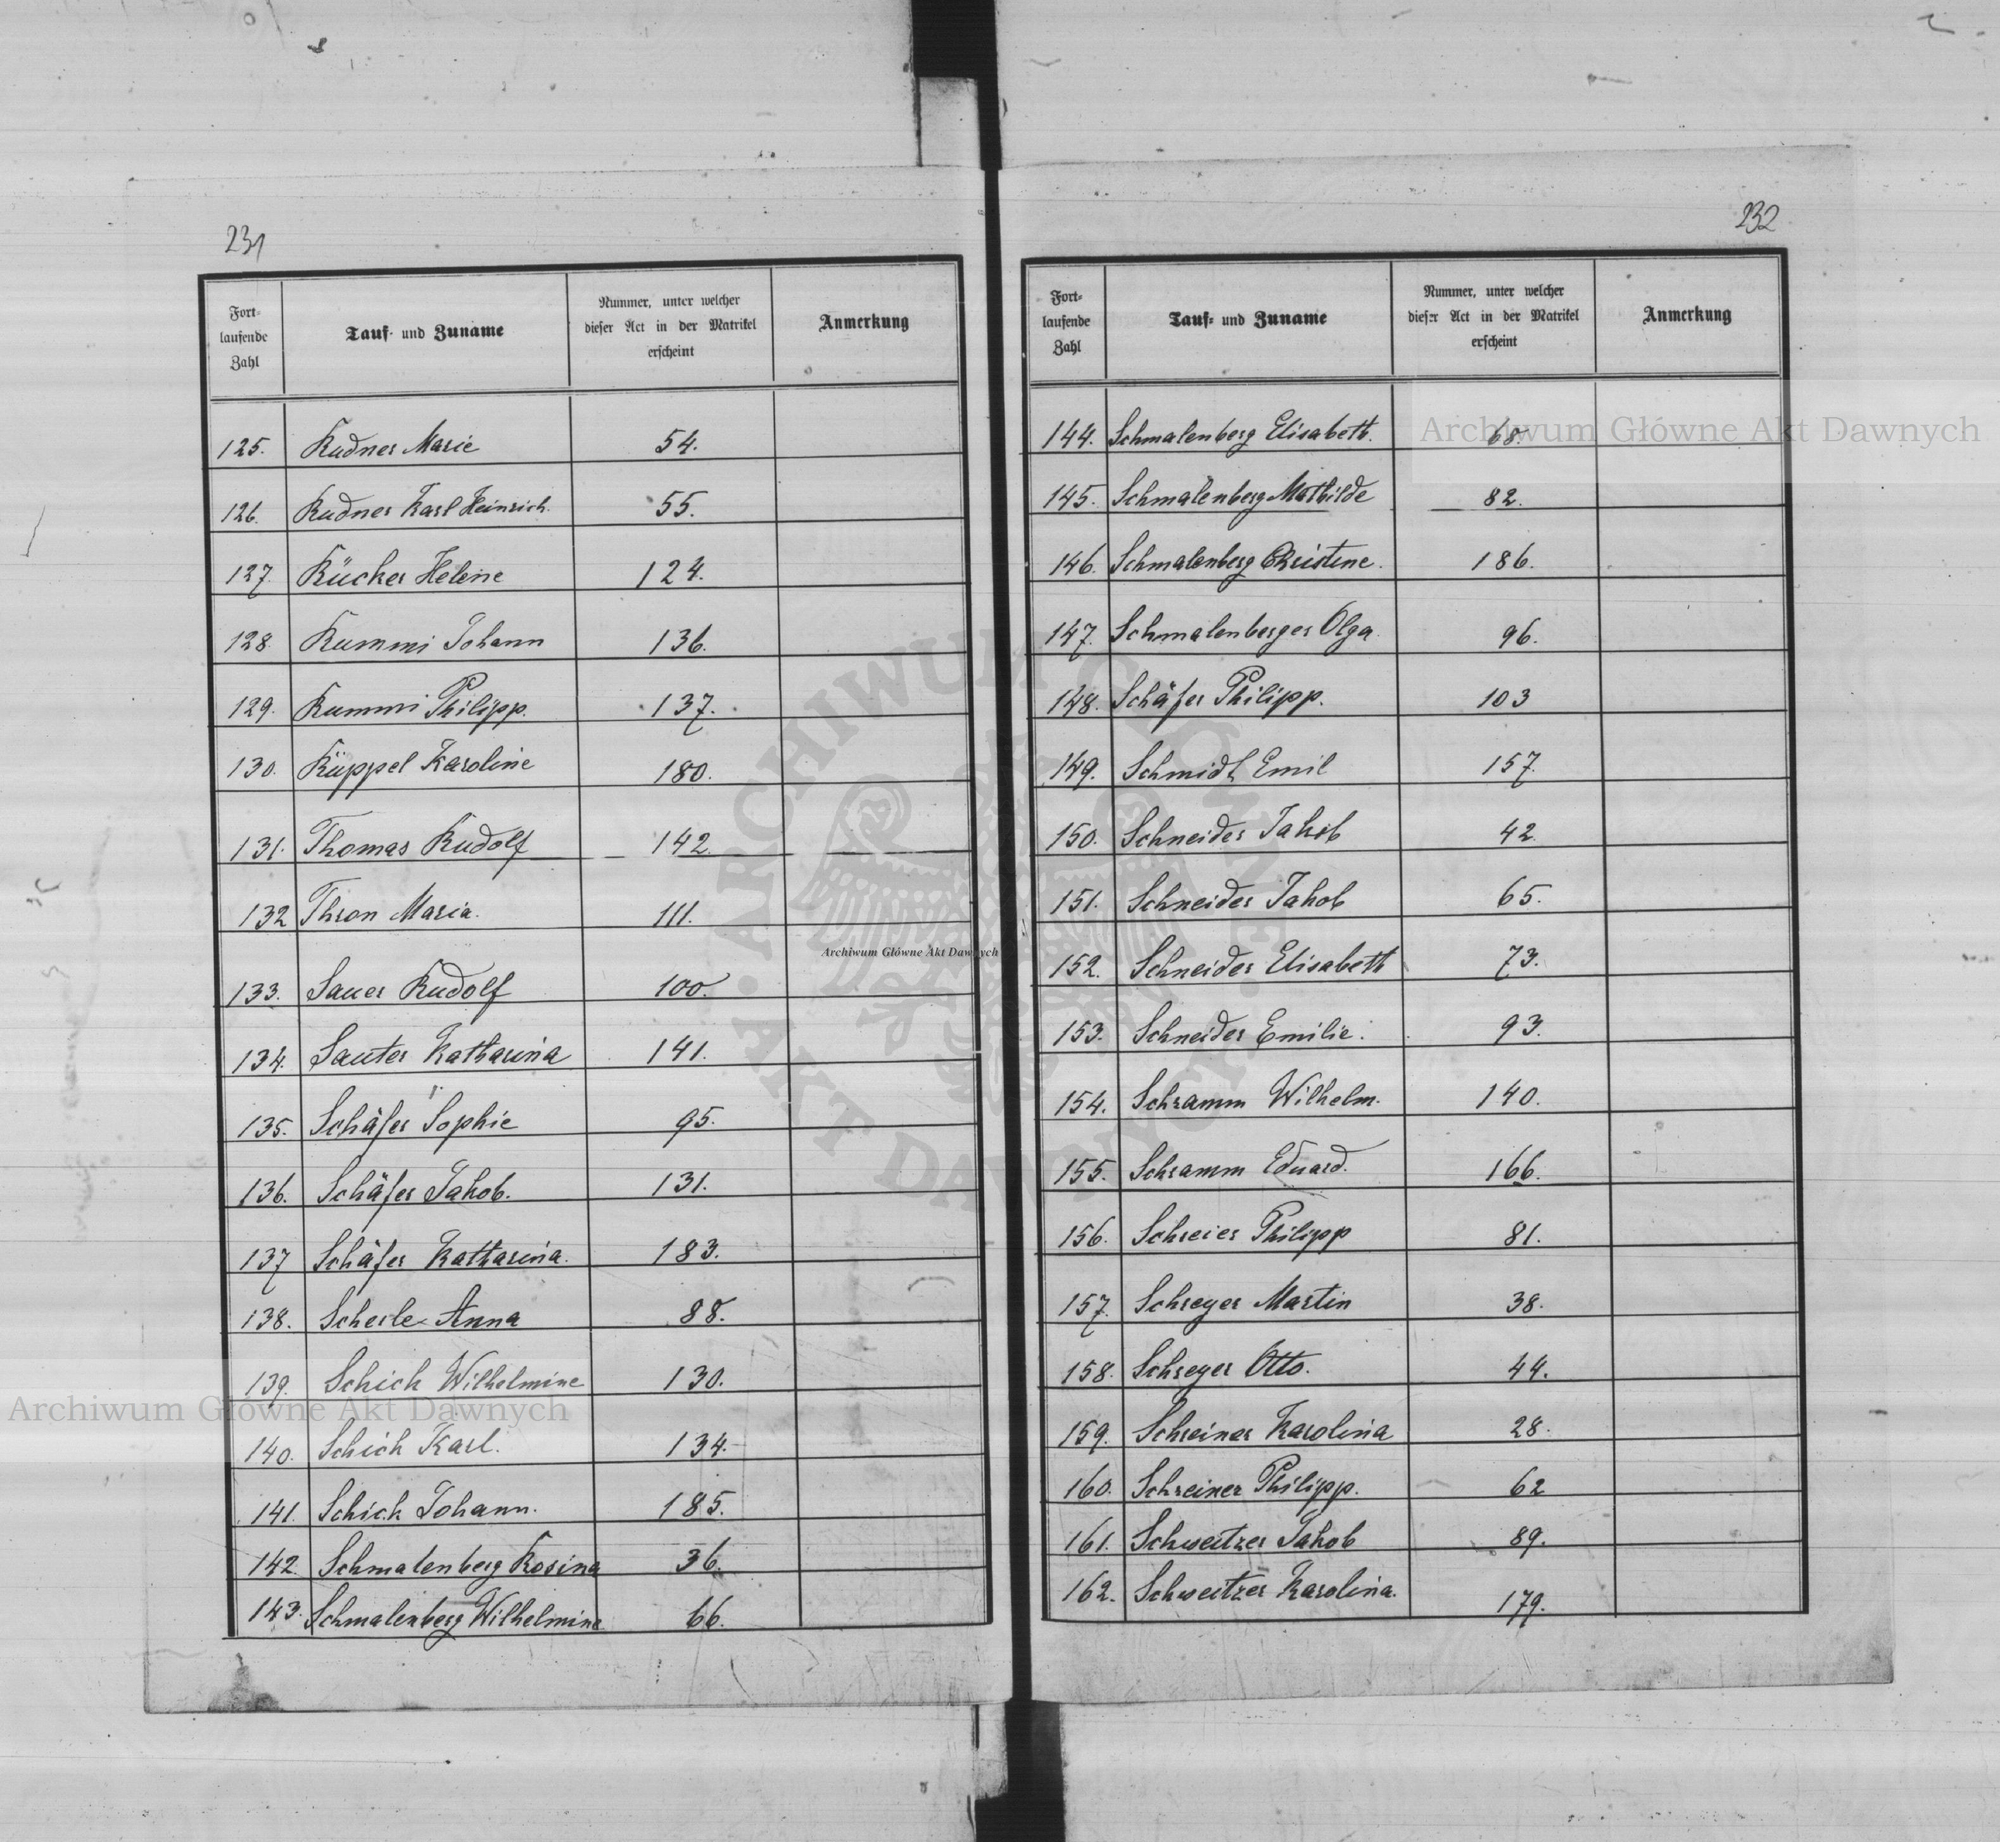 231
Fort-
laufende
Zahl
Tauf- und Zuname
Nummer, unter welcher
dieser Act in der Matrikel
erscheint
Anmerkung
125. Rudner Marie 54.
126. Rudner Karl Heinrich. 55.
127. Rücker Helene 124.
128. Rummi Johann 136.
129. Rummi Philipp. 137.
130. Rüppel Karoline 180.
131. Thomas Rudolf 142.
132 Thron Maria. 111.
133. Sauer Rudolf 100.
134. Sauter Katharina 141.
135. Schäfer Sophie 95.
136. Schäfer Jakob. 131.
137 Schäfer Katharina. 183.
138. Scherle Anna 88.
139. Schick Wilhelmine 130.
140. Schick Karl. 134.
141. Schick Johann. 185.
142. Schmalenberg Rosina 36.
143. Schmalenberg Wilhelmine 66.
232
Fort-
laufende
Zahl
Tauf- und Zuname
Nummer, unter welcher
dieser Act in der Matrikel
erscheint
Anmerkung
144. Schmalenberg Elisabeth. 68.
145. Schmalenberg Mathilde 82.
146. Schmalenberg Christine. 186.
147. Schmalenberger Olga. 96.
148. Schäfer Philipp. 103
149. Schmidt Emil 157.
150. Schneider Jakob 42.
151. Schneider Jakob 65.
152. Schneider Elisabeth 73.
153. Schneider Emilie. 93.
154. Schramm Wilhelm. 140.
155. Schramm Eduard. 166.
156. Schreier Philipp 81.
157. Schreyer Martin 38.
158. Schreyer Otto. 44.
159. Schreiner Karolina 28.
160. Schreiner Philipp. 62
161. Schweitzer Jakob 89.
162. Schweitzer Karolina. 179.
Archiwum Główne Akt Dawnych
Archiwum Główne Akt Dawnych
Archiwum Główne Akt Dawnych
ARCHIWUM GŁÓWNE · AKT DAWNYCH ·